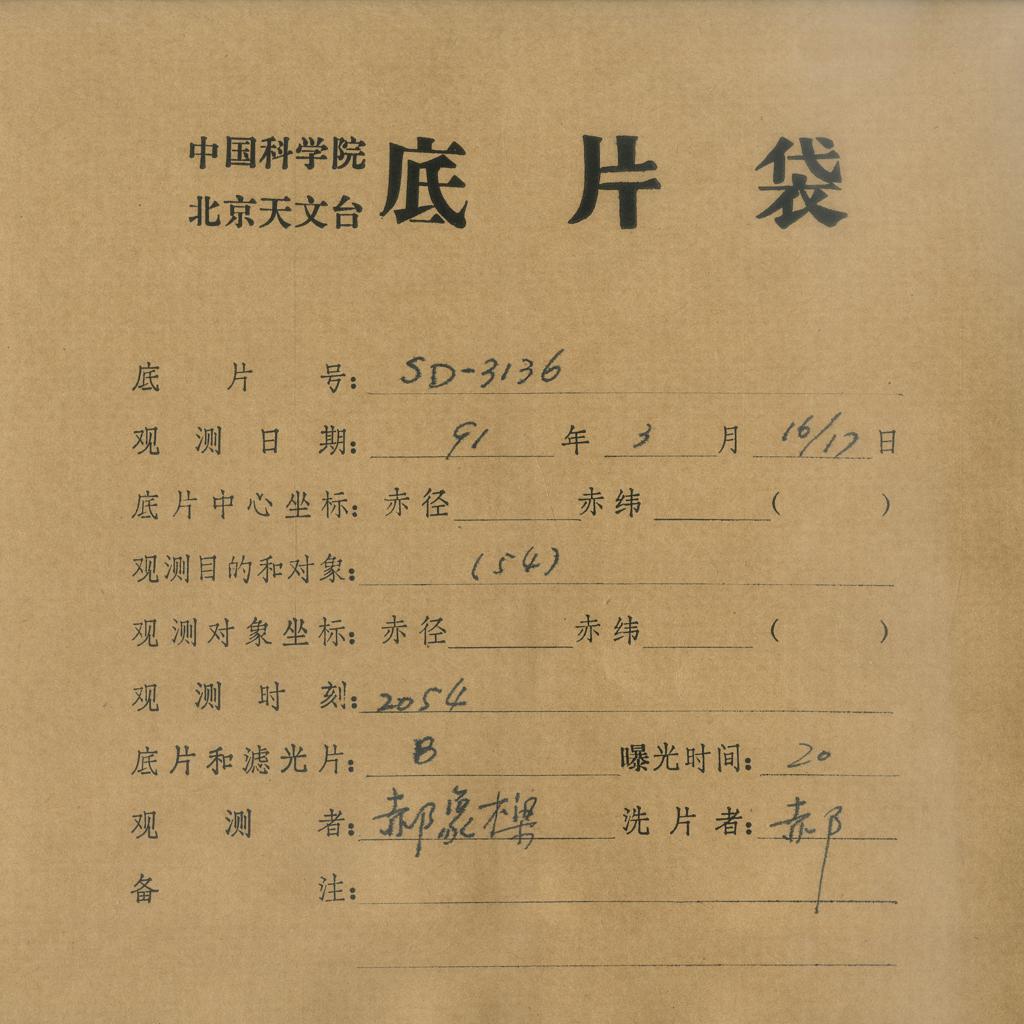 中国科学院
北京天文台
底片袋
底片号：SD-3136
观测日期：91年3月16/17日
底片中心坐标：赤径 赤纬 （ ）
观测目的和对象：（54）
观测对象坐标：赤径 赤纬 （ ）
观测时刻：2054
底片和滤光片：B 曝光时间：20
观测者：郝象樑 洗片者：郝
备注：